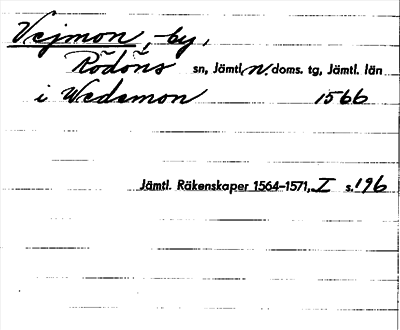 Vejmon, by,
Rödöns sn, Jämtl. n doms. tg, Jämtl. län
i Wedemon 1566
Jämtl. Räkenskaper 1564–1571, I s. 196